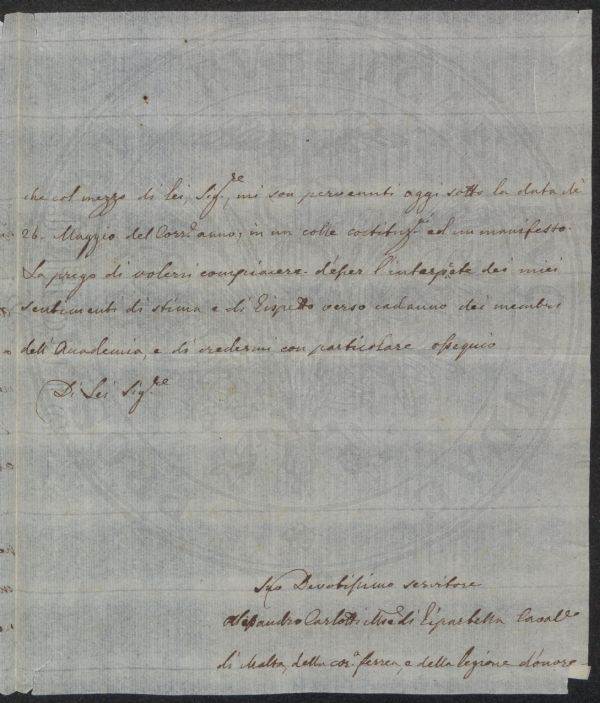 che col mezzo di lei, Sig.re, mi son pervenuti oggi sotto la data di
26. Maggio del Corr.e anno, in un colle costituz.i ed un manifesto.
La prego di volersi compiacere d'esser l'interprete dei miei
sentimenti di stima e di Rispetto verso cadauno dei membri
dell'Academia, e di credermi con particolare ossequio
Di Lei Sig.re
Suo Devotissimo servitore
Alessandro Carlotti M.se di Riparbella Caval.e
di Malta, della cor.a ferrea, e della legione d'onore